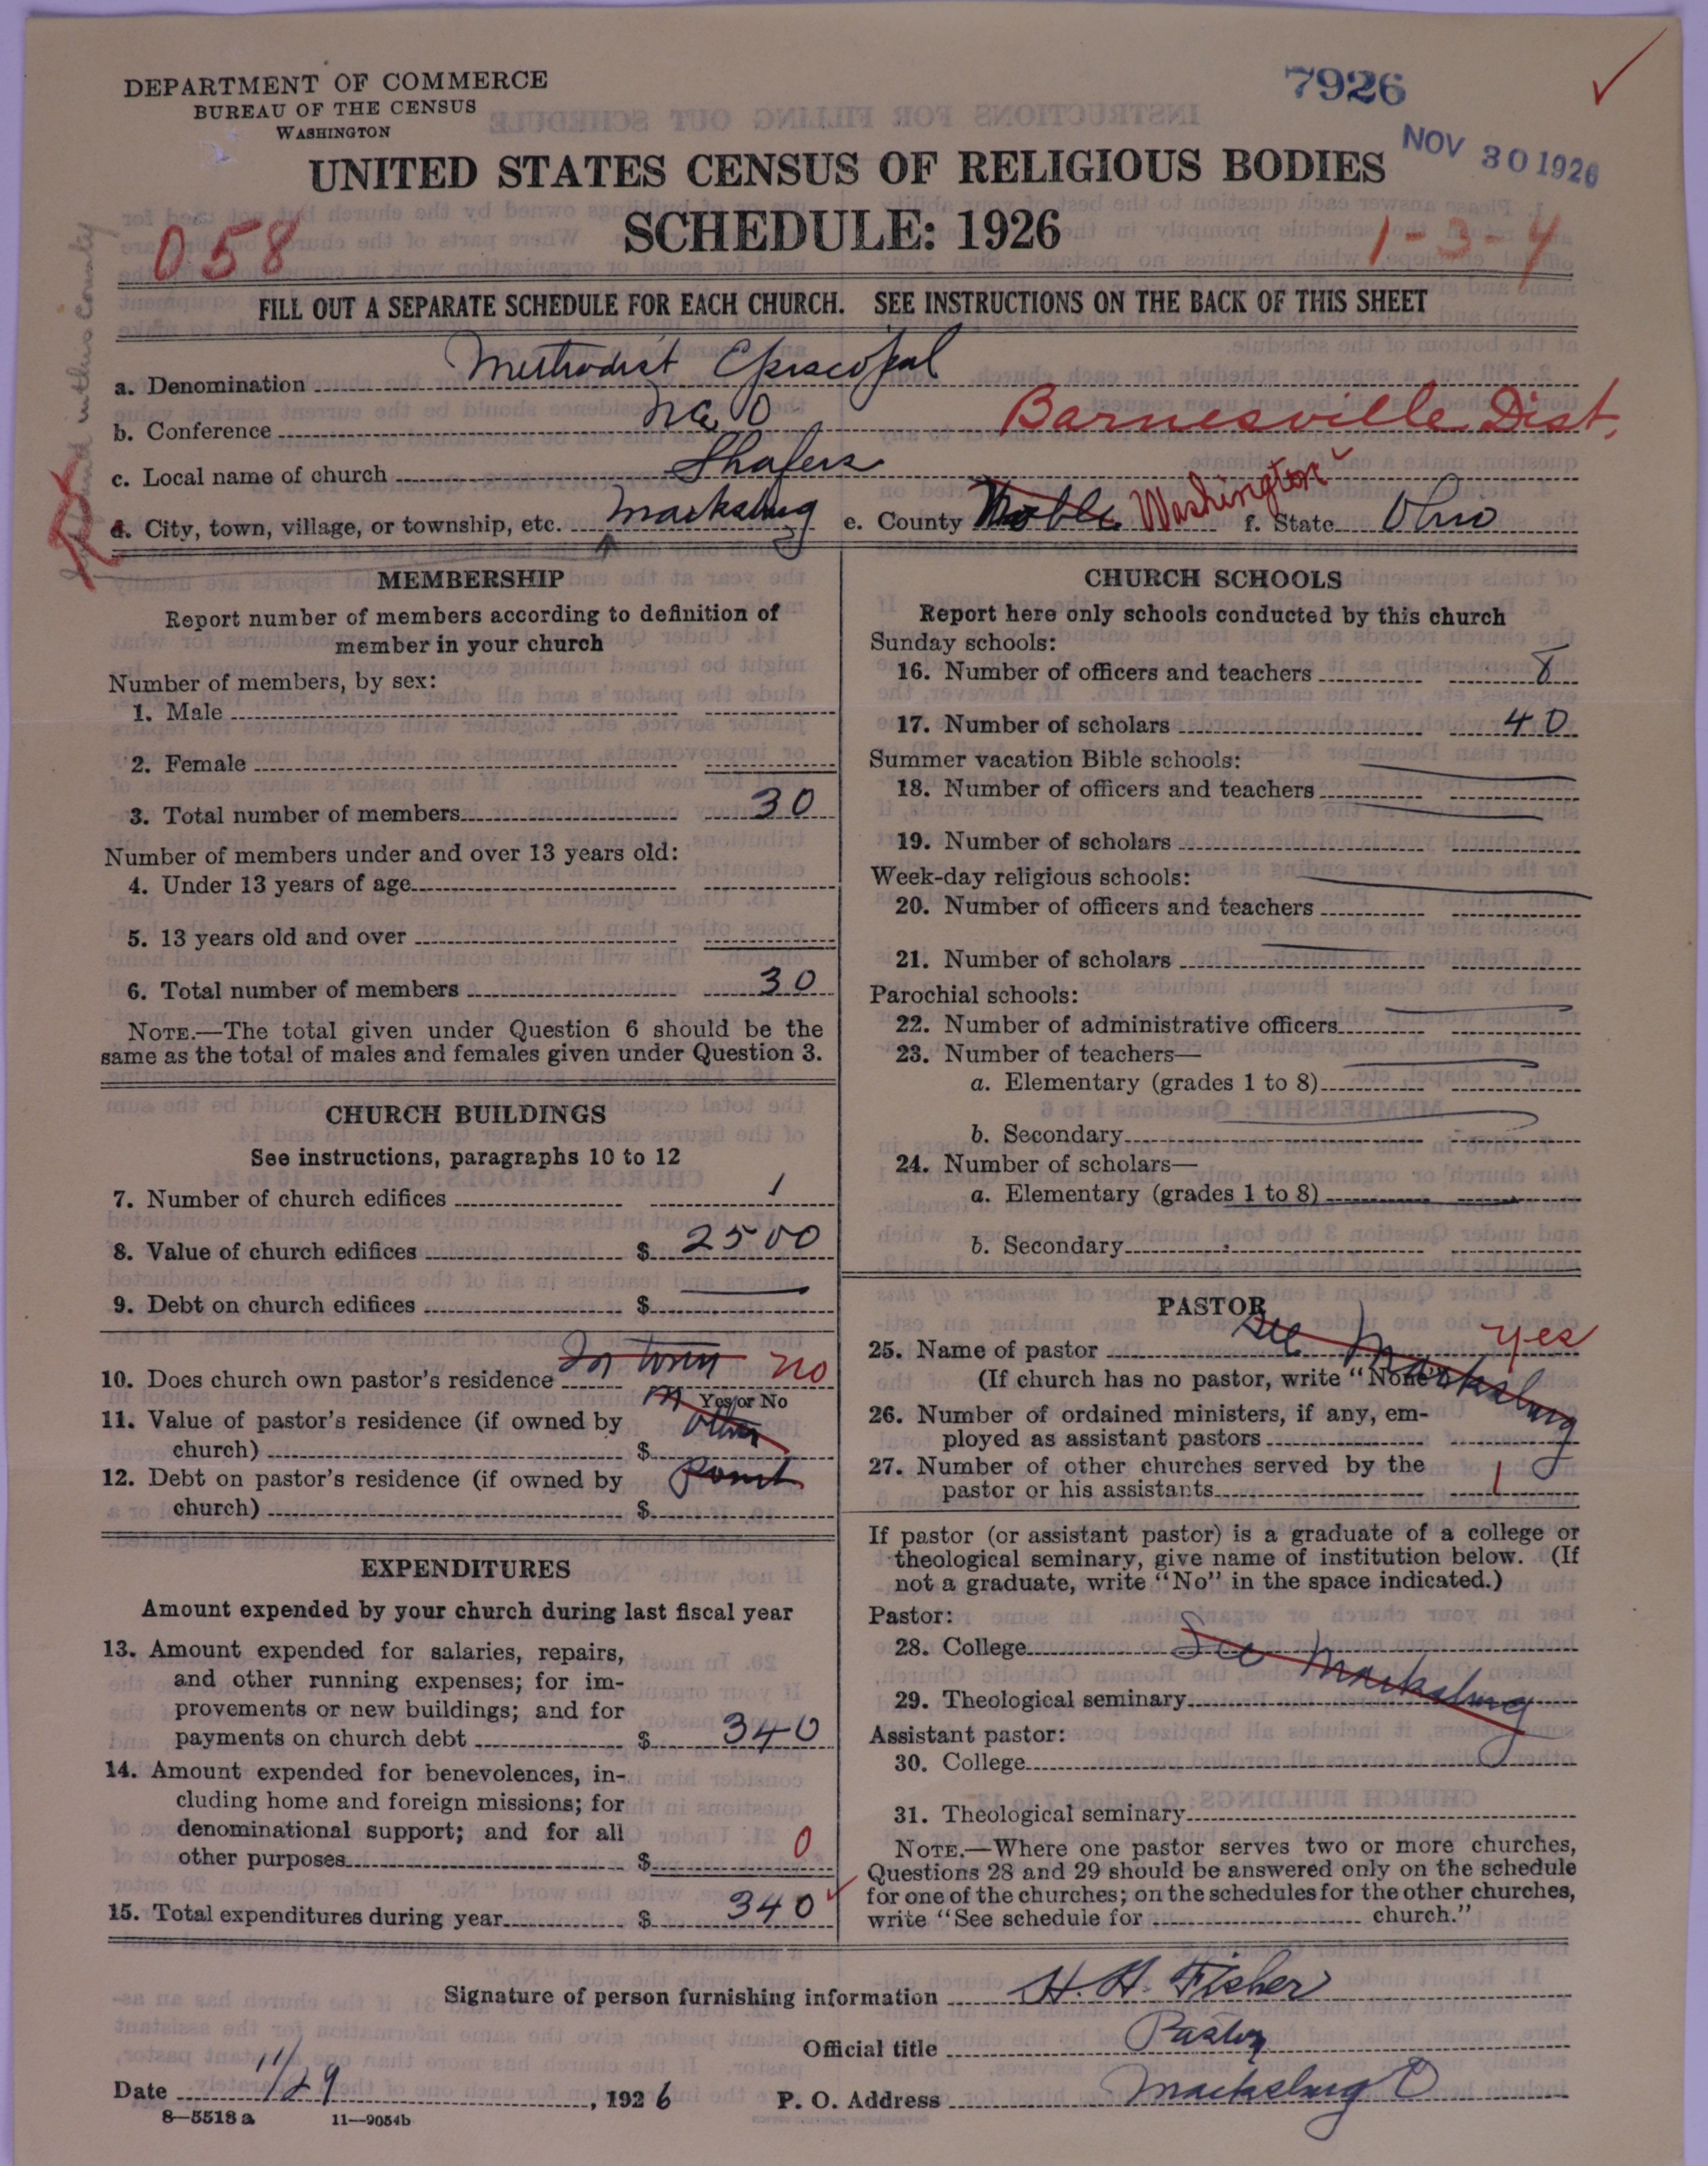 DEPARTMENT OF COMMERCE
BUREAU OF THE CENSUS
WASHINGTON
7926
NOV 30 1926
UNITED STATES CENSUS OF RELIGIOUS BODIES
SCHEDULE: 1926
058
1-3-4
FILL OUT A SEPARATE SCHEDULE FOR EACH CHURCH. SEE INSTRUCTIONS ON THE BACK OF THIS SHEET
a. Denomination Methodist Episcopal
b. Conference N.E.O Barnesville Dist.
c. Local name of church Shafers
d. City, town, village, or township, etc. Macksburg e. County Noble Washington f. State Ohio
MEMBERSHIP
Report number of members according to definition of
member in your church
Number of members, by sex:
1. Male
2. Female
3. Total number of members 30
Number of members under and over 13 years old:
4. Under 13 years of age
5. 13 years old and over
6. Total number of members 30
NOTE.—The total given under Question 6 should be the
same as the total of males and females given under Question 3.
CHURCH BUILDINGS
See instructions, paragraphs 10 to 12
7. Number of church edifices 1
8. Value of church edifices $ 2500
9. Debt on church edifices $
10. Does church own pastor's residence In town no
Yes or No
11. Value of pastor's residence (if owned by
church) $ other
12. Debt on pastor's residence (if owned by
church) $ Point
EXPENDITURES
Amount expended by your church during last fiscal year
13. Amount expended for salaries, repairs,
and other running expenses; for im-
provements or new buildings; and for
payments on church debt $ 340
14. Amount expended for benevolences, in-
cluding home and foreign missions; for
denominational support; and for all
other purposes $ 0
15. Total expenditures during year $ 340
CHURCH SCHOOLS
Report here only schools conducted by this church
Sunday schools:
16. Number of officers and teachers 8
17. Number of scholars 40
Summer vacation Bible schools:
18. Number of officers and teachers
19. Number of scholars
Week-day religious schools:
20. Number of officers and teachers
21. Number of scholars
Parochial schools:
22. Number of administrative officers
23. Number of teachers—
a. Elementary (grades 1 to 8)
b. Secondary
24. Number of scholars—
a. Elementary (grades 1 to 8)
b. Secondary
PASTOR
25. Name of pastor See Macksburg yes
(If church has no pastor, write "None")
26. Number of ordained ministers, if any, em-
ployed as assistant pastors
27. Number of other churches served by the
pastor or his assistants 1
If pastor (or assistant pastor) is a graduate of a college or
theological seminary, give name of institution below. (If
not a graduate, write "No" in the space indicated.)
Pastor:
28. College See Macksburg
29. Theological seminary
Assistant pastor:
30. College
31. Theological seminary
NOTE.—Where one pastor serves two or more churches,
Questions 28 and 29 should be answered only on the schedule
for one of the churches; on the schedules for the other churches,
write "See schedule for church."
Signature of person furnishing information H. H. Fisher
Official title Pastor
Date 11/29, 1926 P. O. Address Macksburg O
8—5518 a 11—9054b